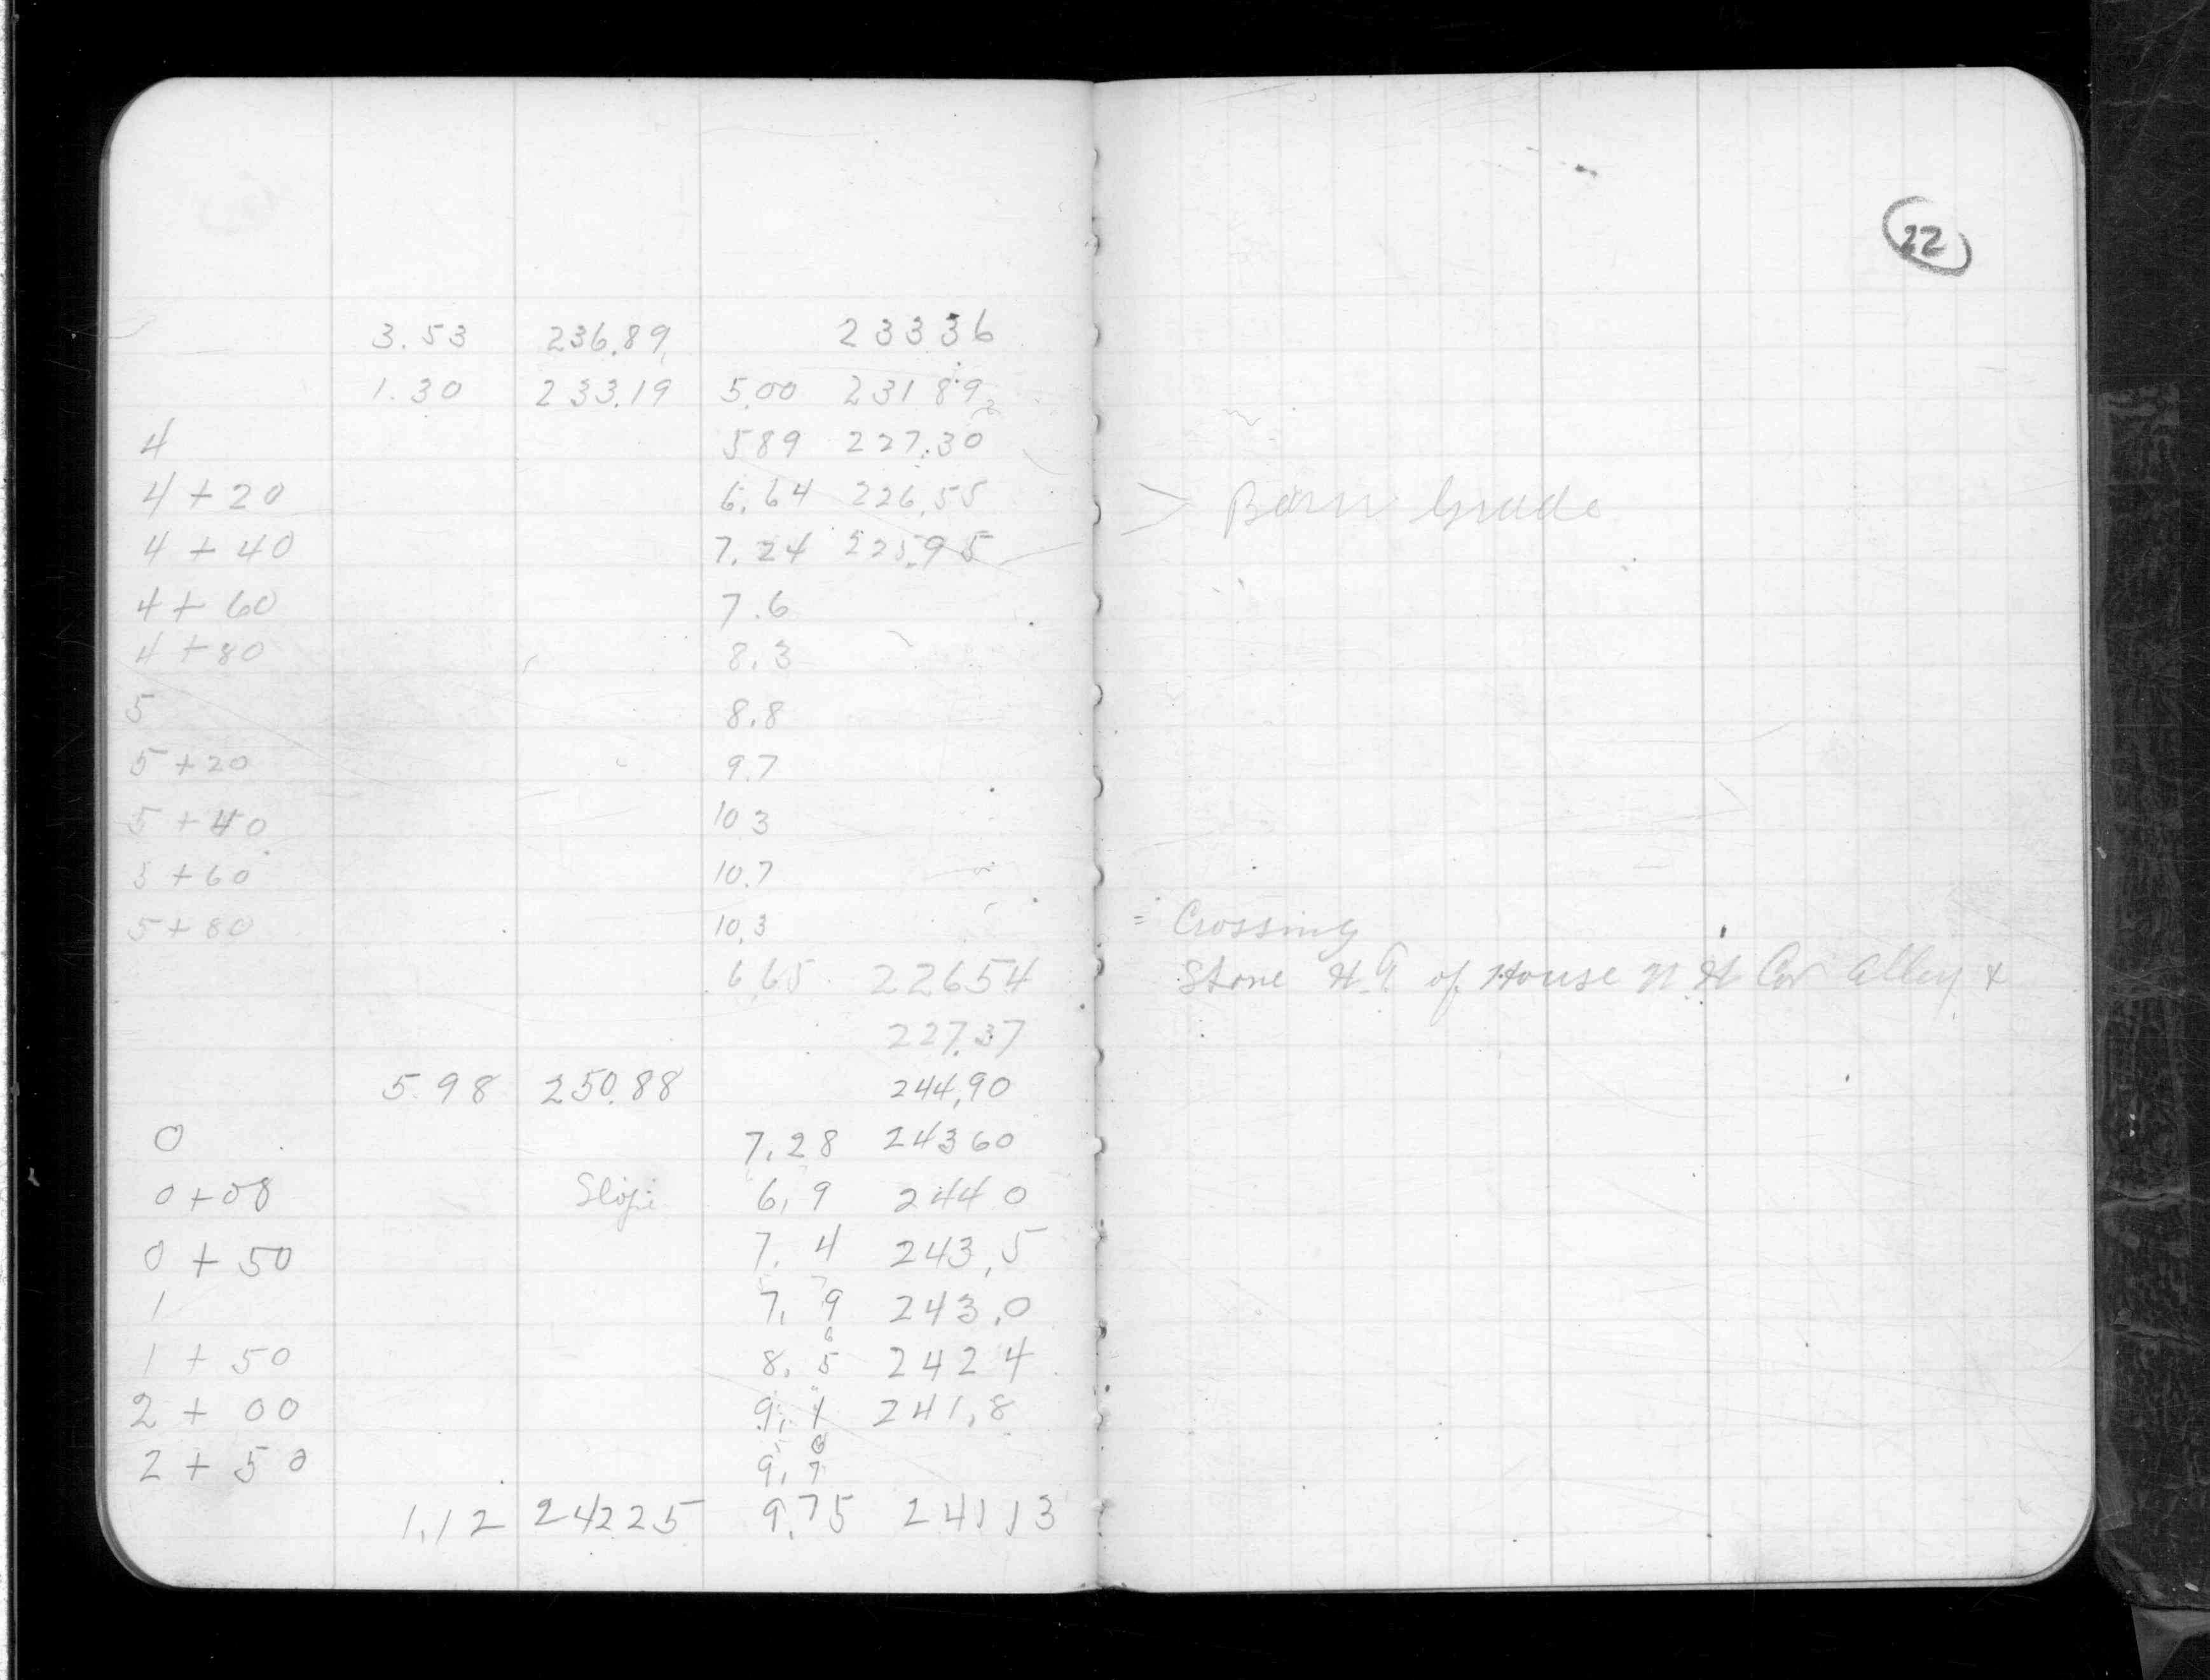 22
3.53 236.89 23336
1.30 233.19 5.00 23189
4 589 227.30
4 + 20 6.64 226.55
4 + 40 7.24 225.95
Grade
4 + 60 7.6
4 + 80 8.3
5 8.8
5 + 20 9.7
5 + 40 10 3
5 + 60 10.7
5 + 80 10.3 = Crossing
6.65 22654 Stone of House Cor Alley +
227.37
5.98 250.88 244.90
0 7.28 24360
0 + 08 Slope 6.9 244 0
0 + 50 7.4 243.5
1 7.9 243.0
1 + 50 8.5 242 4
2 + 00 9.1 241.8
2 + 50 9.7
1.12 24225 9.75 24113